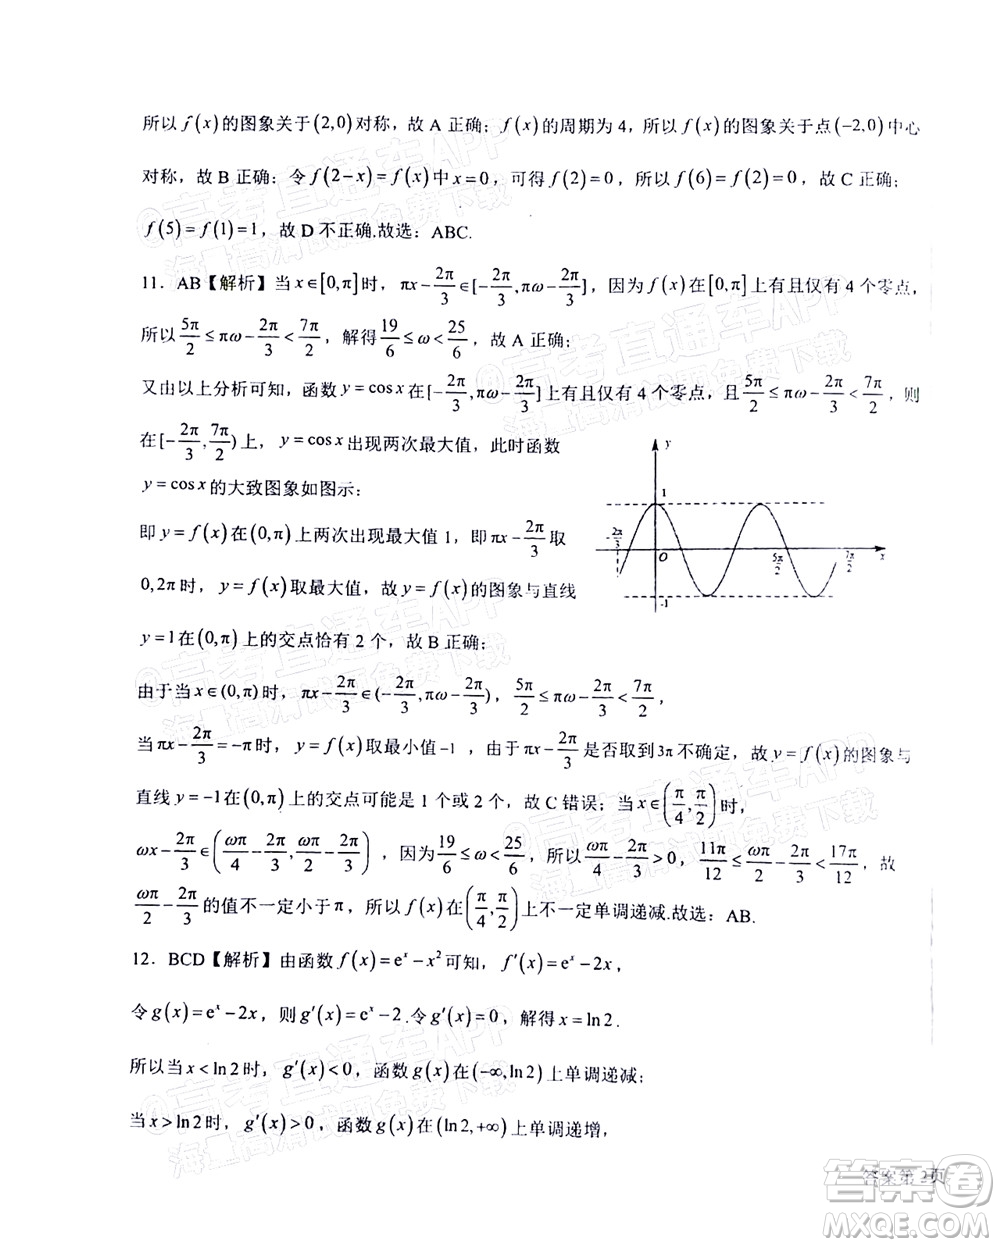 所以 f(x) 的图象关于(2,0)对称，故 A 正确；f(x) 的周期为 4，所以 f(x) 的图象关于点(−2,0)中心
对称，故 B 正确；令 f(2−x)=f(x)中 x=0，可得 f(2)=0，所以 f(6)=f(2)=0，故 C 正确；
f(5)=f(1)=1，故 D 不正确.故选：ABC.
11．AB【解析】当 x∈[0,π]时，πx−2π/3∈[−2π/3,πω−2π/3]，因为 f(x)在[0,π]上有且仅有 4 个零点，
所以 5π/2≤πω−2π/3<7π/2，解得 19/6≤ω<25/6，故 A 正确；
又由以上分析可知，函数 y=cosx 在[−2π/3,πω−2π/3]上有且仅有 4 个零点，且 5π/2≤πω−2π/3<7π/2，则
在[−2π/3,7π/2)上，y=cosx 出现两次最大值，此时函数
y=cosx 的大致图象如图示：
即 y=f(x)在(0,π)上两次出现最大值 1，即 πx−2π/3 取
0,2π时，y=f(x)取最大值，故 y=f(x)的图象与直线
y=1在(0,π)上的交点恰有 2 个，故 B 正确；
y
1
−2π/3
O
5π/2
7π/2
x
−1
由于当 x∈(0,π)时，πx−2π/3∈(−2π/3,πω−2π/3)，5π/2≤πω−2π/3<7π/2，
当 πx−2π/3=−π时，y=f(x)取最小值−1，由于 πx−2π/3 是否取到 3π 不确定，故 y=f(x)的图象与
直线 y=−1在(0,π)上的交点可能是 1 个或 2 个，故 C 错误；当 x∈(π/4,π/2)时，
ωx−2π/3∈(ωπ/4−2π/3,ωπ/2−2π/3)，因为 19/6≤ω<25/6，所以 ωπ/4−2π/3>0，11π/12≤ωπ/2−2π/3<17π/12，故
ωπ/2−2π/3 的值不一定小于 π，所以 f(x)在(π/4,π/2)上不一定单调递减.故选：AB.
12．BCD【解析】由函数 f(x)=eˣ−x²可知，f′(x)=eˣ−2x，
令 g(x)=eˣ−2x，则 g′(x)=eˣ−2.令 g′(x)=0，解得 x=ln2.
所以当 x<ln2时，g′(x)<0，函数 g(x)在(−∞,ln2)上单调递减；
当 x>ln2时，g′(x)>0，函数 g(x)在(ln2,+∞)上单调递增，
答案第 2页
答案卷
MXQE.COM
@高考直通车APP
海量高清试题免费下载